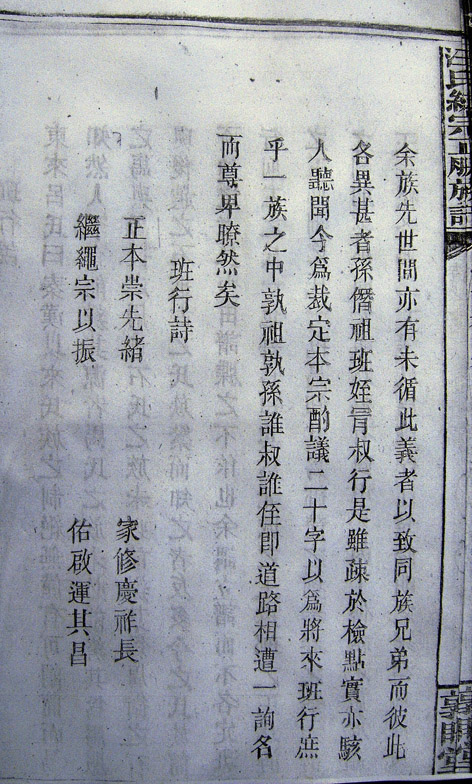 汪氏宗正脈族譜
余族先世間亦有未循此義者以致同族兄弟而彼此
各異甚者孫僭祖班姪冐叔行是雖疎於檢點實亦駭
人聽聞今爲裁定本宗酌議二十字以爲將來班行庶
乎一族之中孰祖孰孫誰叔誰侄即道路相遭一詢名
而尊卑瞭然矣
班行詩
正本崇先緒 家修慶祚長
繼繩宗以振 佑啟運其昌